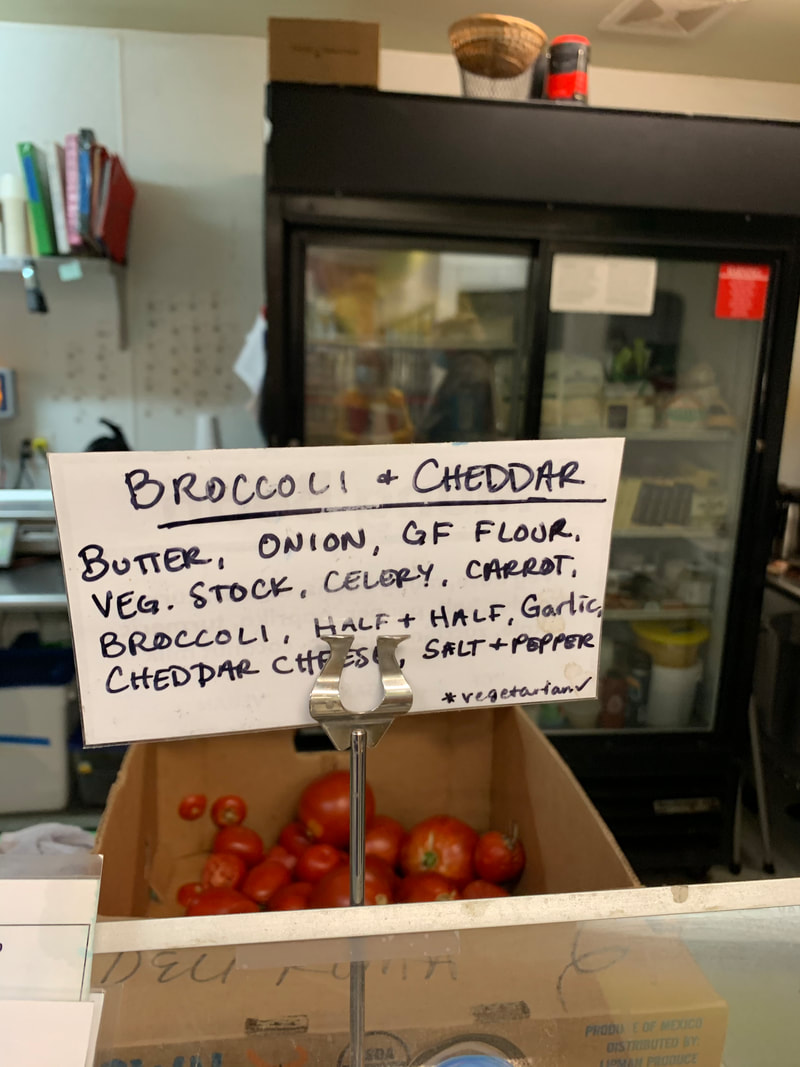 BROCCOLI + CHEDDAR
BUTTER, ONION, GF FLOUR,
VEG. STOCK, CELERY, CARROT,
BROCCOLI, HALF + HALF, Garlic,
CHEDDAR CHEESE, SALT + PEPPER
*vegetarian✓
DELI ROMA
PRODUCE OF MEXICO
DISTRIBUTED BY:
LIPMAN PRODUCE